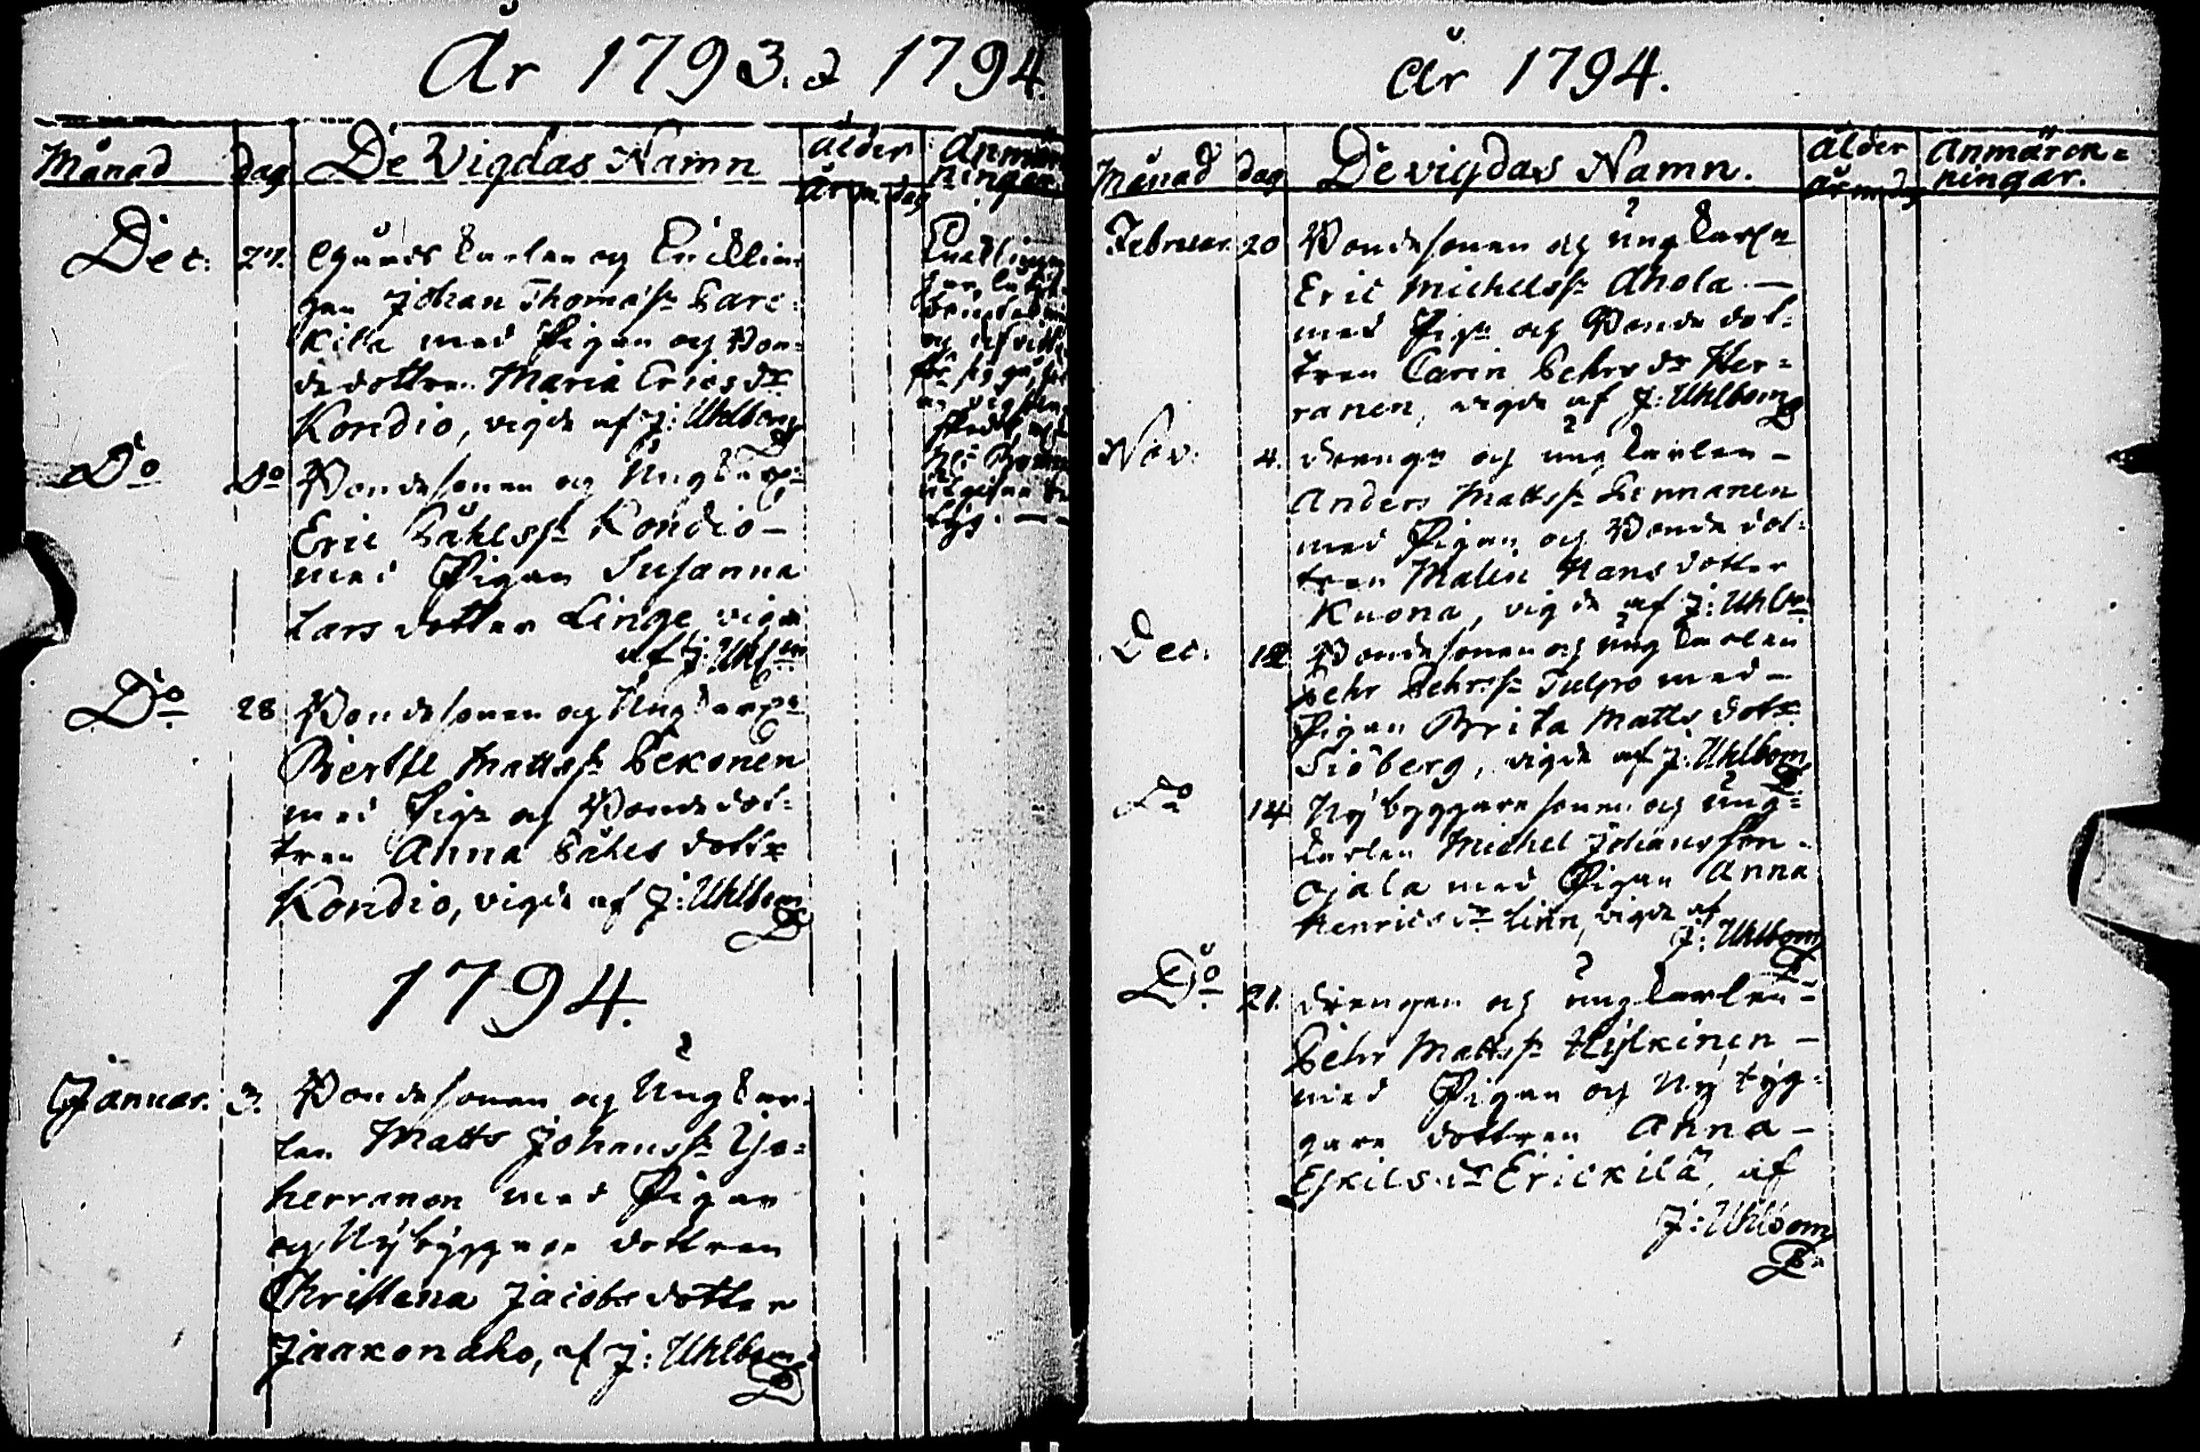 År 1793. & 1794.
Månad Dag De Vigdas Namn ålder Anmärk-
år m. dag ningar.
Dec: 27. Gårds karlen og Encklin-
gen Johan Thomæss: Parc-
kila med Pigan og Bon-
de dottren Maria Ericsdr
Kondio, vigde af J: Uhlbom
Do Do Bondesonen og Ungkarln
Eric Påhlss: Kondio -
med Pigan Susanna
Lars dotter Linge vigde
af J: Uhlm
Do 28 Bondesonen og Ungkarln
Bertil Mattss: Pekonen
med Pign og Bonde dot-
tren Anna Påhls dottr
Kondio, vigde af J: Uhlbom
1794.
Januar. 3. Bondesonen og Ungkar-
len Matts Johanss: Yso-
herranen med Pigan
og Nybyggare dottren
Christena Jacobs dotter
Jaakonaho, af J: Uhlbom
År 1794.
Månad Dag De vigdas Namn. ålder Anmärck-
år m d ningar.
Februar. 20 Bondesonen og ungkarln
Eric Michelss: Ahola. -
med Pign og Bonde dot-
tren Carin Pehrsdr Her-
ranen, vigde af J: Uhlbom
Nov: 4. drengn og ungkarlen -
Anders Mattss: Pennanen
med Pigan og Bonde dot-
tren Malin Hans dotter
Kuona, vigde af J: Uhlbm
Dec: 12 Bondesonen og ungkarlen
Pehr Pehrss: Tulpo med -
Pigan Brita Matts dotr
Siöberg, vigde af J: Uhlbom
Do 14 Nybyggaresonen og ung-
karlen Michel Johansson -
Ojala med Pigan Anna
Henricsdr Linn, vigde af
J: Uhlbom
Do 21. drengen og ungkarlen -
Pehr Mattss: Hylkinen -
med Pigan og Nybyg-
gare dottren Anna -
Eskilsdr Erickilä, af
J: Uhlbom